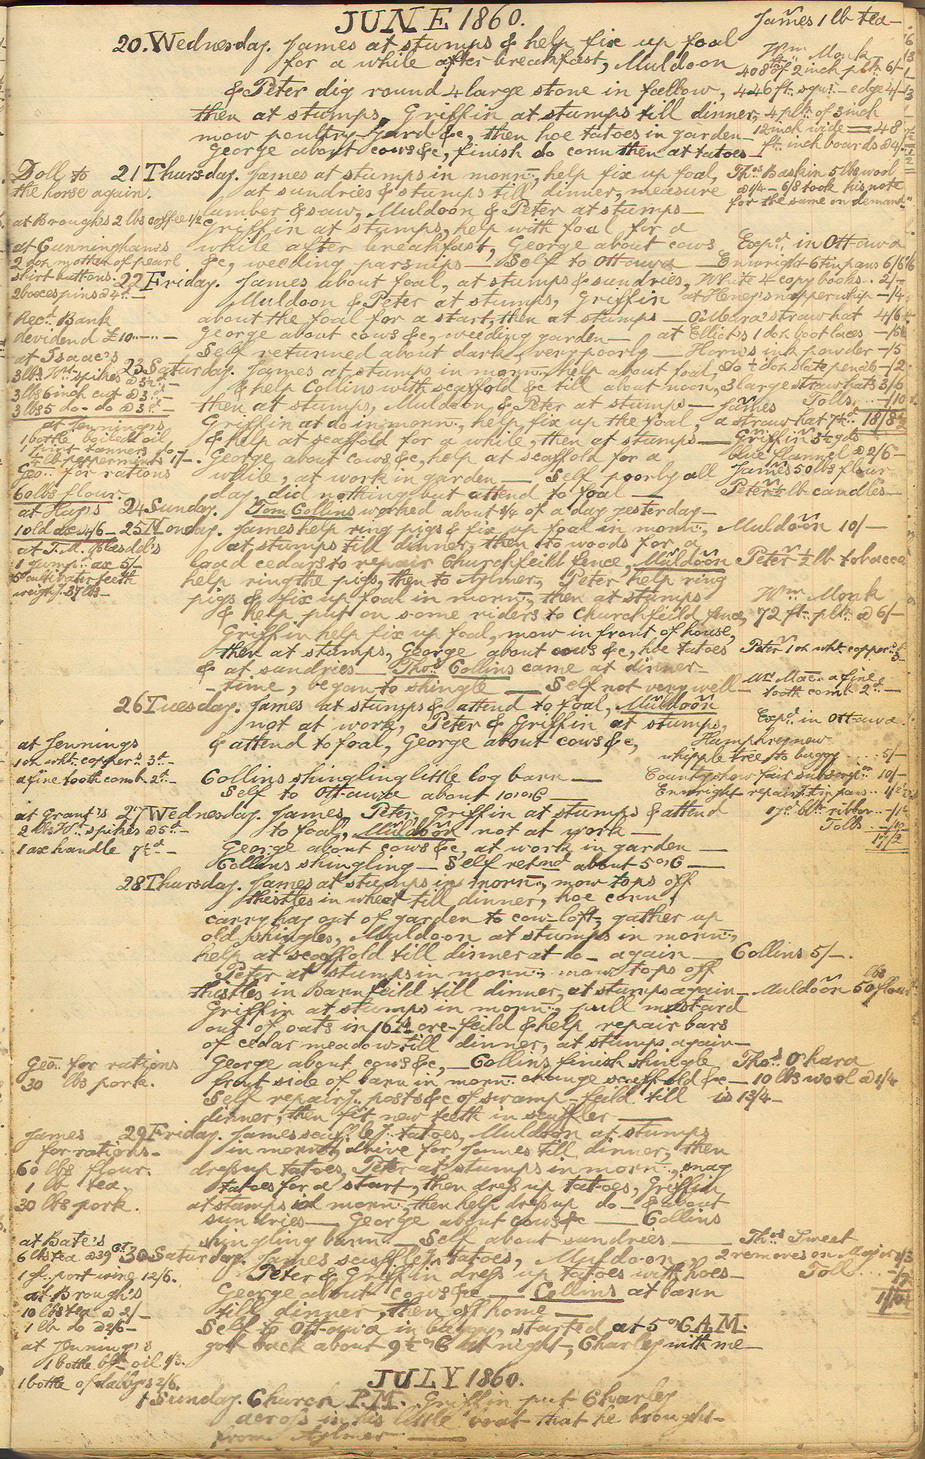 JUNE 1860.
James 1 lb tea—
20. Wednesday. James at stumps & help fix up foal
for a while after breakfast, Muldoon
& Peter dig round 4 large stone in fallow,
then at stumps, Griffin at stumps till dinner,
mow poultry-yard &c, then hoe tatoes in garden—
George about cows &c, finish do corn then at tatoes—
Wm Monk
408 ft of 2 inch plk 6/—
446 ft. squr. edge 4/—
4 plk of 3 inch
12 inch wide = 48
ft. inch boards @ 4/—
Doll to
the horse again.
21 Thursday. James at stumps in morn., help fix up foal,
at sundries & stumps till dinner, measure
lumber & saw, Muldoon & Peter at stumps—
Griffin at stumps, help with foal for a
while after breakfast, George about cows
&c, weeding parsnips— Self to Ottawa—
Thos. Baskin 5 lbs wool
@ 1/4— 6/8 took his note
for the same on demand
at Brough's 2 lbs coffee 1/2
at Cunningham's
2 doz mother of pearl
shirt buttons.
2 boxes pins @ 4d—
Expd. in Ottawa
Enwright 6 tin pans 6/6
White 4 copy books 2/—
at Heney's
O'Meara's straw hat 4/6
at Elliot's 1 doz boot laces
Horn's ink powder
Do ½ doz slate pencils
3 large straw hats 3/6
Tolls
18/8
22 Friday. James about foal, at stumps & sundries,
Muldoon & Peter at stumps, Griffin
about the foal for a start, then at stumps—
George about cows &c, weeding garden—
Self returned about dark very poorly—
Rect. Bank
devidend £10—
at Isaac's
3 lbs Wt. spikes @ 3½d—
3 lbs 6 inch cut @ 3d—
3 lbs 5 do- do @ 3d—
23 Saturday. James at stumps in morn., help about foal,
& help Collins with scaffold &c till about noon,
then at stumps, Muldoon & Peter at stumps—
Griffin at do in morn., help, fix up the foal,
& help at scaffold for a while, then at stumps—
George about cows &c, help at scaffold for a
while, at work in garden— Self poorly all
day did nothing but attend to foal—
James
a straw hat 7½d
Griffin 5½ yds
blue flannel @ 2/6—
James 50 lbs flour
Peter ½ lb candles—
at Jennings
1 bottle boiled oil
tanners do
¼ lb peppermints 7—
Geo. for rations
60 lbs flour.
24 Sunday. Tom Collins worked about ¾ of a day yesterday—
at Hay's
1 old axe 4/6—
at T.M. Blasdel's
1 gump. ax 5/—
5 cultivator teeth
weigh. 37 lbs—
25 Monday. James help ring pigs & fix up foal in morn.,
at stumps till dinner, then to woods for a
load cedars to repair Churchfeild fence, Muldoon
help ring the pigs, then to Aylmer, Peter help ring
pigs & fix up foal in morn., then at stumps
& help put on some riders to Churchfeild fence,
Griffin help fix up foal, mow in front of house,
then at stumps, George about cows &c, hoe tatoes
& at sundries— Thos. Collins came at dinner-
-time, began to shingle— Self not very well—
Muldoon 10/—
Peter ½ lb tobacco
Wm Monk
72 ft. plk. @ 6/—
Peter 1 oz wht. copper.s
Mr Mac. a fine
tooth comb 2d—
26 Tuesday. James at stumps & attend to foal, Muldoon
not at work, Peter & Griffin at stumps,
& attend to foal, George about cows &c,
Collins shingling little log barn—
Self to Ottawa about 10 o'c—
Expd. in Ottawa.
Humphry new
whipple tree to buggy 5/—
County show fair subscrip. 10/—
Enwright repair tin pans
1 yd. blk. ribbon
Tolls
17/2
at Jennings
1 oz wht. copper.s 3d—
a fine tooth comb 2d—
at Grant's
2 lbs Wt. spikes @ 5d—
1 ax handle 7½d—
27 Wednesday. James, Peter, Griffin at stumps & attend
to foal, Muldoon not at work—
George about cows &c, at work in garden—
Collins shingling— Self retnd. about 5 o'c—
28 Thursday. James at stumps in morn., mow tops off
thistles in wheat till dinner, hoe corn,
carry hay out of garden to cow-loft, gather up
old shingles, Muldoon at stumps in morn.,
help at scaffold till dinner at do— again—
Peter at stumps in morn., mow tops off
thistles in Barnfeild till dinner, at stumps again—
Griffin at stumps in morn., pull mustard
out of oats in 16 Acre-feild & help repair bars
of cedar meadow till dinner, at stumps again—
George about cows &c,— Collins finish shingle
front side of barn in morn., change scaffold &c—
Self repairg. posts &c of swamp-feild till
dinner, then fit new teeth in scuffler—
Collins 5/—.
Muldoon 60 lbs flour
Geo. for rations
30 lbs pork.
Thos. Ohara
10 lbs wool @ 1/4
is 13/4—
James
for rations—
60 lbs flour.
1 lb tea.
30 lbs pork.
29 Friday. James scufflg. tatoes, Muldoon at stumps
in morn., drive for James till dinner, then
dress up tatoes, Peter at stumps in morn.,
tatoes for a start, then dress up tatoes, Griffin
at stumps in morn., then help dress up do— & about
sundries— George about cows &c— Collins
shingling barn— Self about sundries—
at Bate's
6 lbs tea @ 3/9
1 gl. port wine 12/6.
at Brough's
10 lbs tea @ 2/—
1 lb do @ 2/6—
at Jennings
1 bottle blk oil
1 bottle of dalleys 2/6.
30 Saturday. James scufflg. tatoes, Muldoon,
Peter & Griffin dress up tatoes with hoes—
George about cows &c— Collins at barn
till dinner, then off home—
Self to Ottawa in buggy, started at 5 o'c A.M.
got back about 9½ o'c at night, Charley with me—
Thos. Sweet
2 removes on Major
Toll
JULY 1860.
1 Sunday. Church P.M. Griffin put Charley
across in his little boat that he brought
from Aylmer—